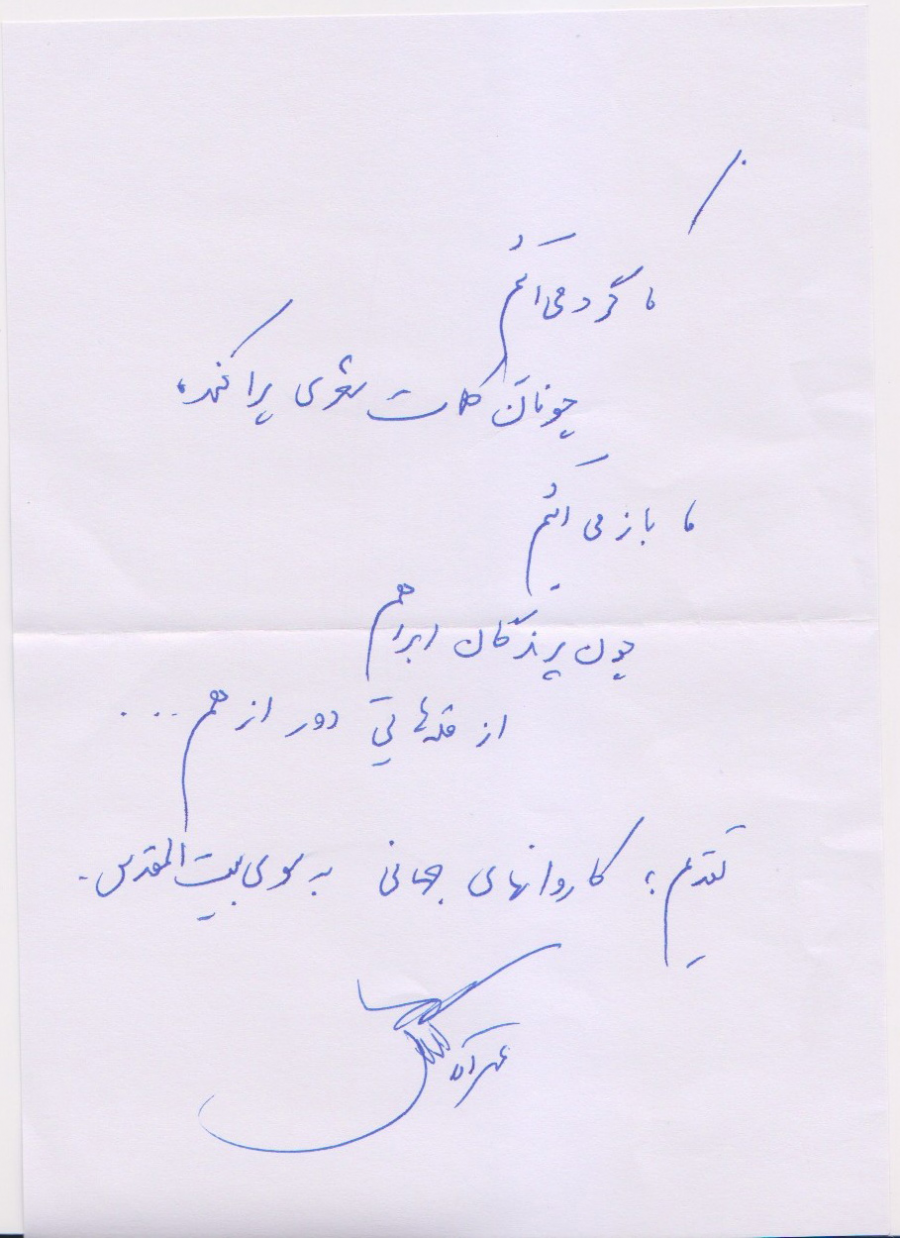 ما گرد می‌آئیم
چونان کلمات شعری پراکنده،
ما باز می‌آئیم
چون پرندگان ابراهیم
از قله‌هایی دور از هم ...
تقدیم به کاروانهای جهانی به سوی بیت‌المقدس.